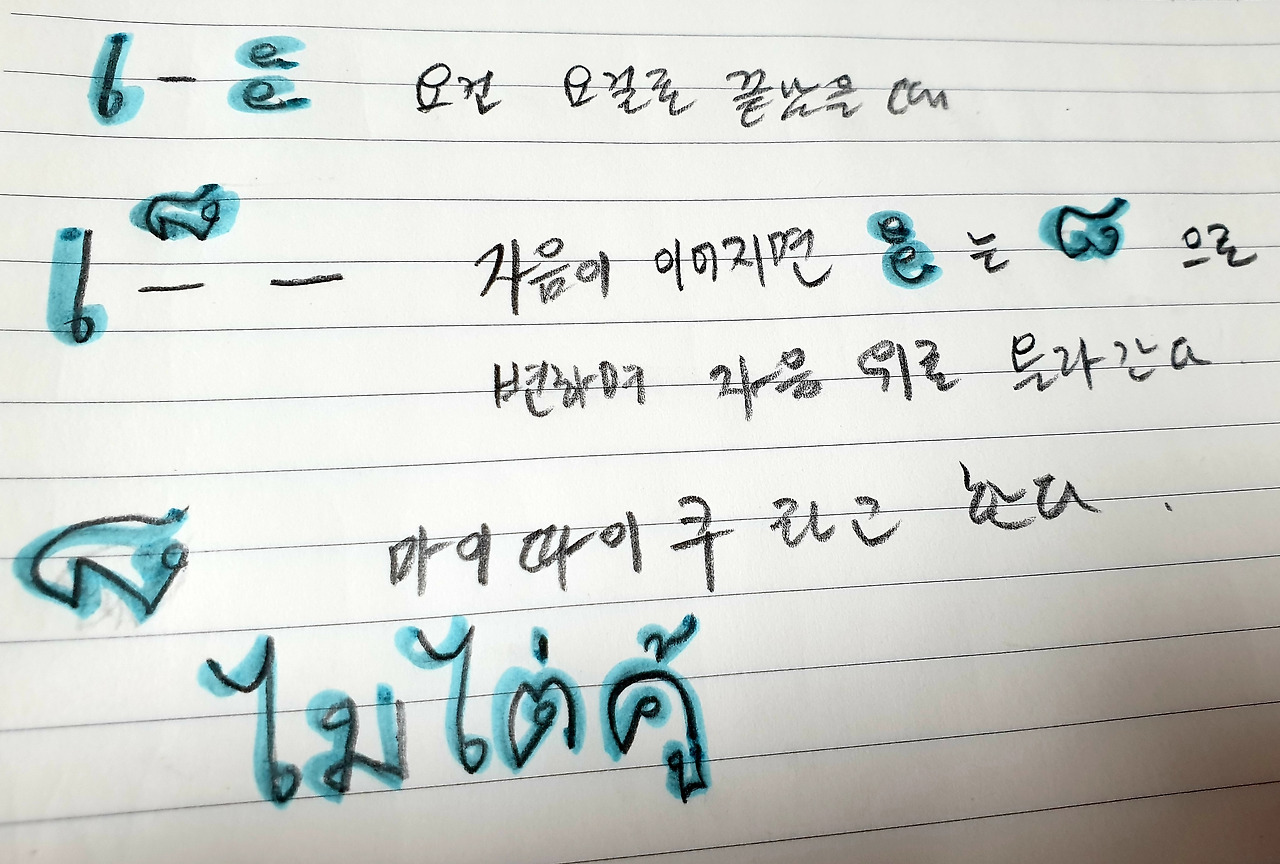 เ-ะ 요건 요걸로 끝났을 때
เ-็- 자음이 이어지면 ะ 는 ็ 으로
변하며 자음 위로 올라간다
็ 마이따이쿠 라고 한다.
ไมไต่คู้